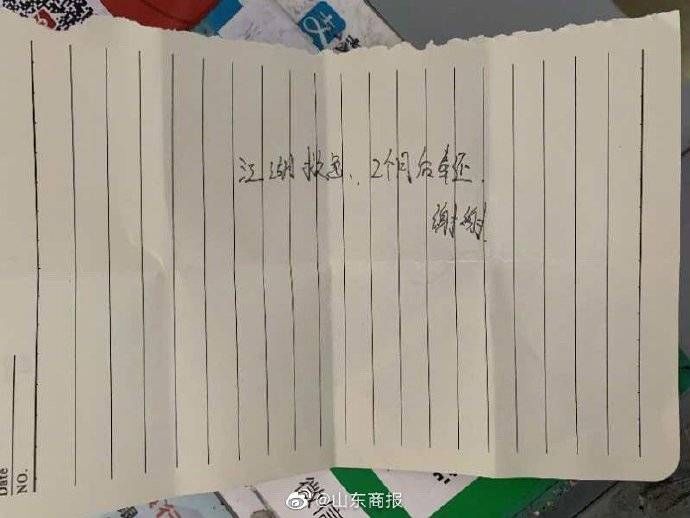 江湖救急，2个月后奉还．
谢谢
Date
NO.
@山东商报